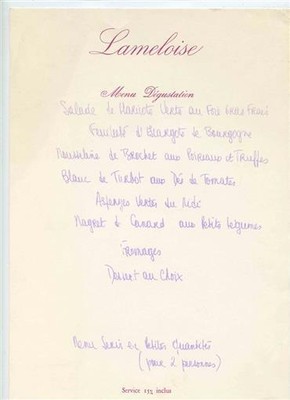 Lameloise
Menu Dégustation
Salade de Haricots Verts au Foie Gras Frais
d'Escargots de Bourgogne
Mousseline de Brochet aux Poireaux et Truffes
Blanc de Turbot aux Dés de Tomates
Asperges Vertes du Midi
de Canard aux Petits Légumes
Fromages
Dessert au Choix
Menu Servi en Petites Quantités
(pour 2 personnes)
Service 15% inclus